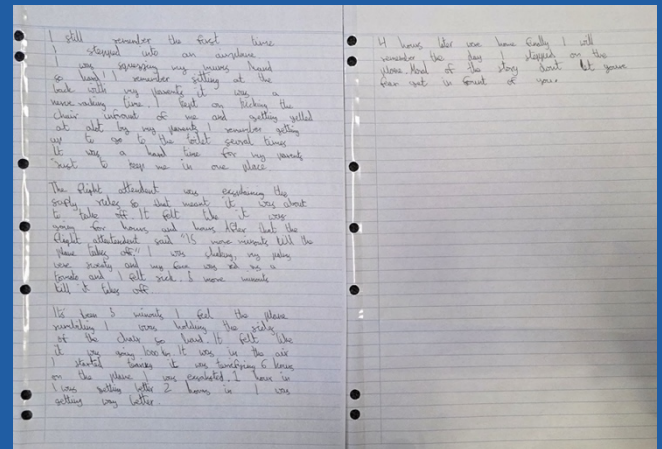 I still remember the first time
I stepped into an airplane
I was squezzing my mums hand
so hard! I remember sitting at the
back with my parents it was a
nerve-raking time. I kept on kicking the
chair infront of me and getting yelled
at alot by my parents I remember getting
up to go to the toilet several times
It was a hard time for my parents
Just to keep me in one place
The flight attendant was explaining the
safty rules so that meant it was about
to take off. It felt like it was
going for hours and hours After that the
flight attendent said "15 more minuts till the
plane takes off" I was shaking, my palms
were sweaty and my face was red as a
tomato and I felt sick. 5 more minuts
till it takes off.
Its been 5 minuts I feel the plane
rumbling I was holding the side
of the chair so hard. It felt like
it was going It was in the air
I started it was terrifying 6 hours
on the plane I was exausted. 1 hour in
I was getting better 2 hours in I was
getting way better.
4 hours later were home finally I will
remember the day I stepped on the
plane. Moral of the story dont let youre
fear get in front of you.